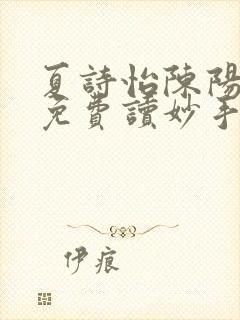 夏詩怡陳陽
免費讀妙手
伊痕